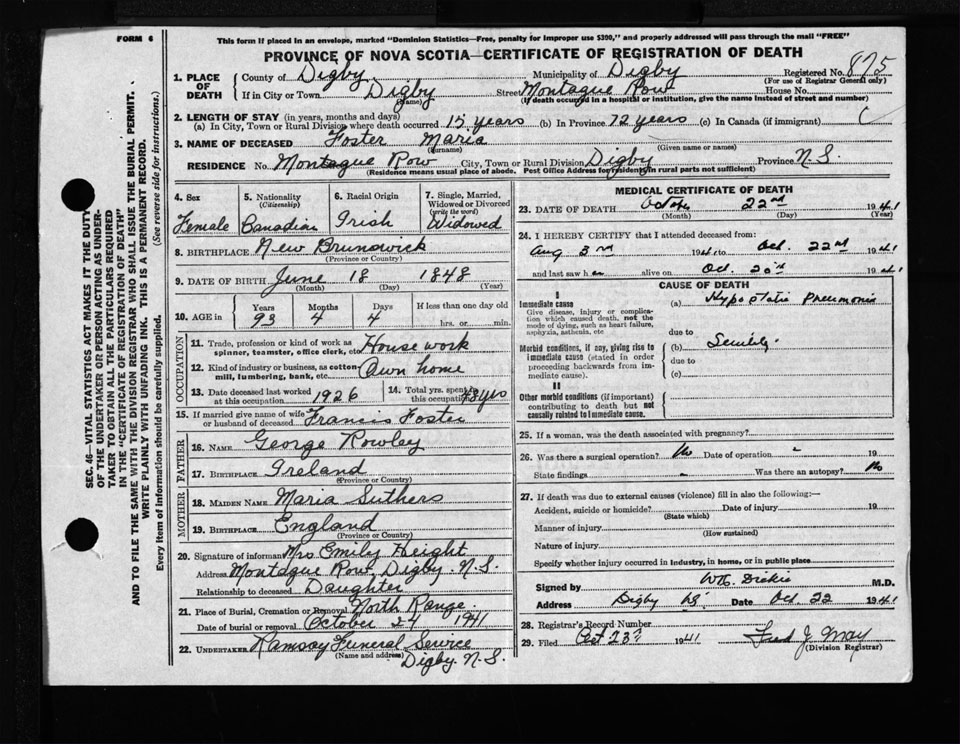 FORM 6
This form if placed in an envelope, marked "Dominion Statistics—Free, penalty for improper use $300," and properly addressed will pass through the mail "FREE"
PROVINCE OF NOVA SCOTIA—CERTIFICATE OF REGISTRATION OF DEATH
1. PLACE OF DEATH
County of Digby Municipality of Digby Registered No. 875
(For use of Registrar General only)
If in City or Town Digby Street Montague Row House No.
(Name) (If death occurred in a hospital or institution, give the name instead of street and number)
2. LENGTH OF STAY (in years, months and days)
(a) In City, Town or Rural Division where death occurred 15 years (b) In Province 72 years (c) In Canada (if immigrant)
3. NAME OF DECEASED Foster Maria
(Surname) (Given name or names)
RESIDENCE No. Montague Row City, Town or Rural Division Digby Province N.S.
(Residence means usual place of abode. Post Office Address for residents in rural parts not sufficient)
4. Sex Female
5. Nationality (Citizenship) Canadian
6. Racial Origin Irish
7. Single, Married, Widowed or Divorced (write the word) Widowed
8. BIRTHPLACE New Brunswick
(Province or Country)
9. DATE OF BIRTH June 18 1848
(Month) (Day) (Year)
10. AGE in Years 93 Months 4 Days 4 If less than one day old hrs. or min.
OCCUPATION
11. Trade, profession or kind of work as spinner, teamster, office clerk, etc. House work
12. Kind of industry or business, as cotton mill, lumbering, bank, etc. Own home
13. Date deceased last worked at this occupation 1926
14. Total yrs. spent in this occupation yrs
15. If married give name of wife or husband of deceased Francis Foster
FATHER
16. NAME George Rowley
17. BIRTHPLACE Ireland
(Province or Country)
MOTHER
18. MAIDEN NAME Maria Suthers
19. BIRTHPLACE England
(Province or Country)
20. Signature of informant Mrs Emily Height
Address Montague Row Digby. N.S.
Relationship to deceased Daughter
21. Place of Burial, Cremation or Removal North Range
Date of burial or removal October 24 1941
22. UNDERTAKER Ramsay Funeral Service
(Name and address) Digby. N.S.
MEDICAL CERTIFICATE OF DEATH
23. DATE OF DEATH October 22nd 1941
(Month) (Day) (Year)
24. I HEREBY CERTIFY that I attended deceased from:
Aug 3rd 1941 to Oct. 22nd 1941
and last saw her alive on Oct. 1941
CAUSE OF DEATH
I
Immediate cause
Give disease, injury or complication which caused death, not the mode of dying, such as heart failure, asphyxia, asthenia, etc
(a) Hypostatic Pneumonia
due to
Morbid conditions, if any, giving rise to immediate cause (stated in order proceeding backwards from immediate cause).
(b) Senility
due to
(c)
II
Other morbid conditions (if important) contributing to death but not causally related to immediate cause.
25. If a woman, was the death associated with pregnancy?
26. Was there a surgical operation? No Date of operation - 19
State findings - Was there an autopsy? No
27. If death was due to external causes (violence) fill in also the following:—
Accident, suicide or homicide? Date of injury 19
(State which)
Manner of injury
(How sustained)
Nature of injury
Specify whether injury occurred in industry, in home, or in public place
Signed by Dickie M.D.
Address Digby NS Date Oct 22 1941
28. Registrar's Record Number
29. Filed Oct 23rd 1941 Fred J. May
(Division Registrar)
SEC. 46—VITAL STATISTICS ACT MAKES IT THE DUTY
OF THE UNDERTAKER OR PERSON ACTING AS UNDER-
TAKER TO OBTAIN ALL THE PARTICULARS REQUIRED
IN THE "CERTIFICATE OF REGISTRATION OF DEATH"
AND TO FILE THE SAME WITH THE DIVISION REGISTRAR WHO SHALL ISSUE THE BURIAL PERMIT.
WRITE PLAINLY WITH UNFADING INK. THIS IS A PERMANENT RECORD.
Every item of information should be carefully supplied. (See reverse side for instructions.)